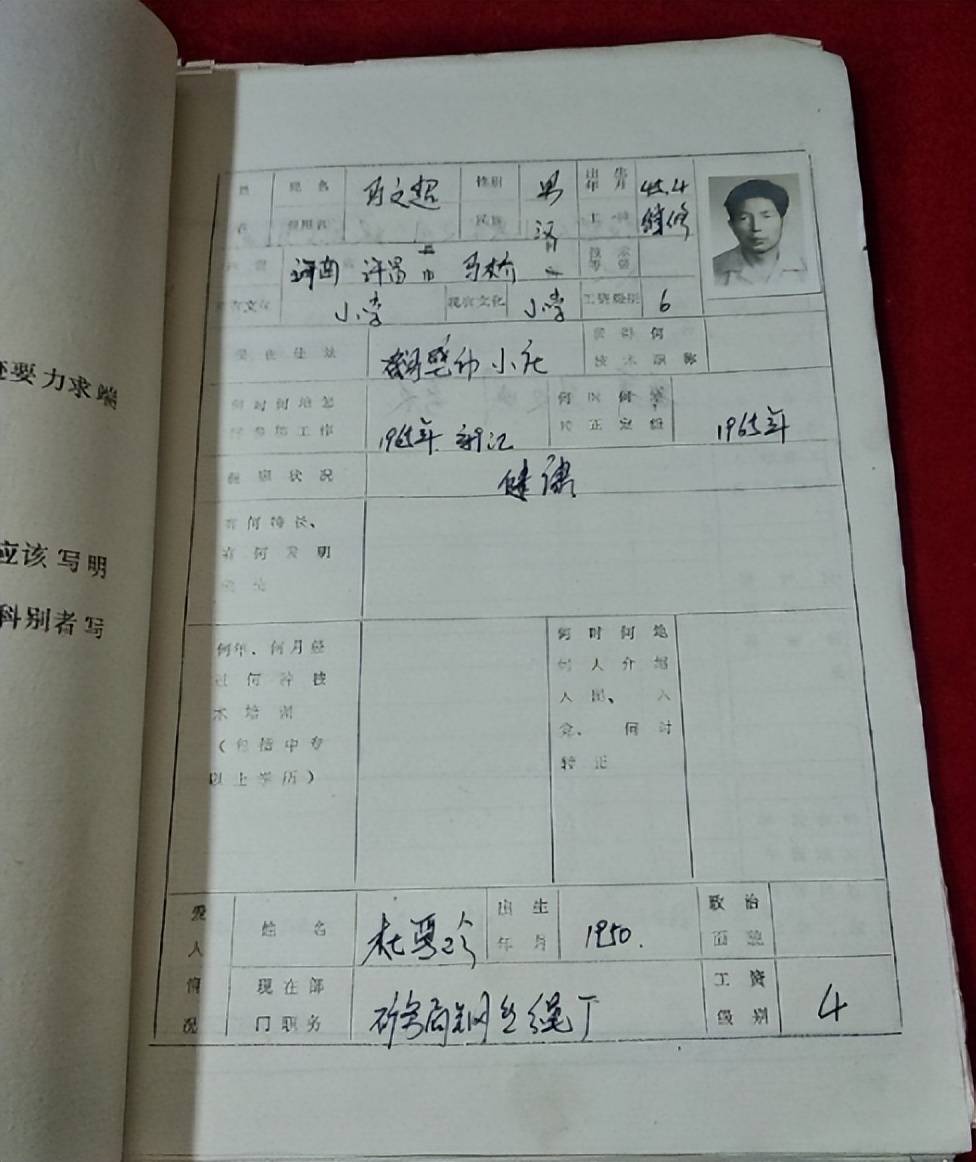 要力求端
应该写明
科别者写
姓 现名 文超 性别 男 出生年月 45.4
名 曾用名 民族 汉 工种 维修
河南 许昌 县市 马桥 技术等级
文化 小学 现有文化 小学 工资级别 6
现在住址 鹤壁市小庄 获得何技术职称
何时何地怎样参加工作 1965年 新江 何时何 转正定级 1965年
健康状况 健康
有何特长、
有何发明
何年、何月经
过何种技
术培训
（包括中专
以上学历）
何时何地
何人介绍
入团、入
党、何时
转正
爱人情况 姓名 杜 出生年月 1950. 政治面貌
现在部门职务 矿务局钢丝绳厂 工资级别 4